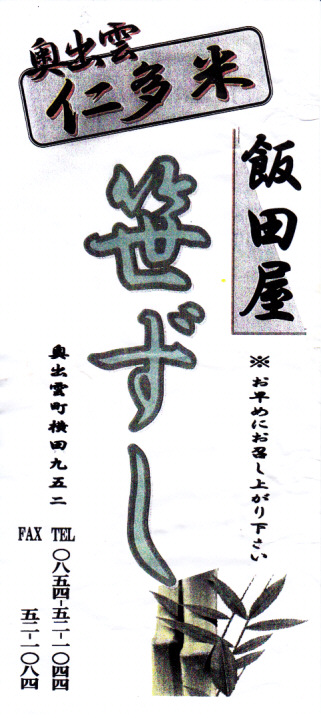 奥出雲
仁多米
飯田屋
※お早めにお召し上がり下さい
笹ずし
奥出雲町横田九五二
TEL 〇八五四-五二-一〇四四
FAX 五二-一〇八四